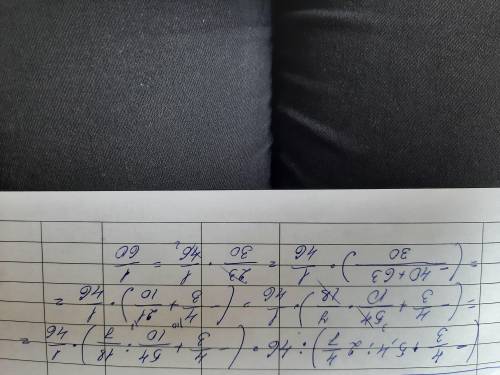 (-4/3 + 5,4 : 2 4/7) : 46 = (-4/3 + 54/10 : 18/7) · 1/46 =
= (-4/3 + 54/10 · 7/18) · 1/46 = (-4/3 + 21/10) · 1/46 =
= ((-40+63)/30) · 1/46 = 23/30 · 1/46 = 1/60